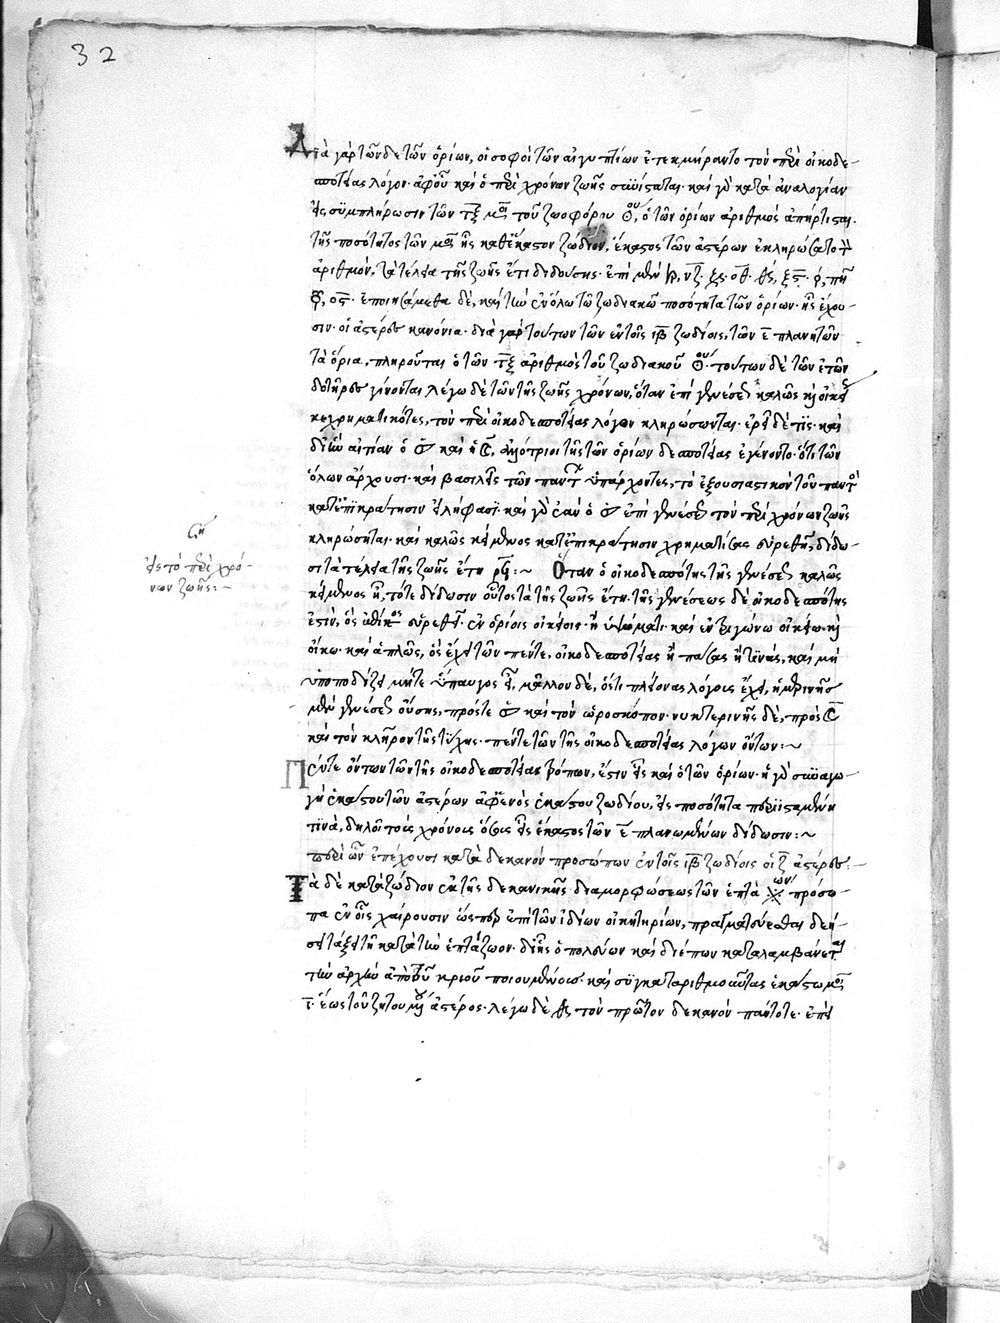 32
Διὰ γὰρ τῶνδε τῶν ὁρίων, οἱ σοφοὶ τῶν αἰγυπτίων ἐτεκμήραντο τὸν περὶ οἰκοδε-
σποτείας λόγον. ἀφ' οὗ καὶ ὁ περὶ χρόνων ζωῆς συνίσταται. καὶ γὰρ κατὰ ἀναλογίαν
συμπλήρωσιν τῶν τξ μοιρῶν τοῦ ζωοφόρου ὁ τῶν ὁρίων ἀριθμὸς ἀπήρτισται.
τῆς ποσότητος τῶν μοιρῶν ἧς καθ' ἕκαστον ζώδιον, ἕκαστος τῶν ἀστέρων ἐκληρώσατο τὸν
ἀριθμὸν, τὰ τέλεια τῆς ζωῆς ἔτη διδούσης. ἐπὶ μὲν
οϛ. ἐποιησάμεθα δὲ, καὶ τὴν ἐν ὅλω τῶ ζωδιακῶ ποσότητα τῶν ὁρίων. ἧς ἔχου-
σιν. οἱ ἀστέρες κανόνια. διὰ γὰρ τούτων τῶν ἐν τοῖς ιβ ζωδίοις, τῶν ε πλανητῶν
τὰ ὅρια, πληροῦται ὁ τῶν τξ ἀριθμὸς τοῦ ζωδιακοῦ τούτων δὲ τῶν ἐτῶν
δοτῆρες γίνονται λέγω δὲ τῶν τῆς ζωῆς χρόνων, ὅταν ἐπὶ γενέσεως καλῶς καὶ οἰκείως
κεχρηματικότες, τὸν περὶ οἰκοδεσποτείας λόγον κληρώσωνται. καὶ
δι' ἣν αἰτίαν ὁ ☉ καὶ ἡ ☾, ἀλλότριοι τῆς τῶν ὁρίων δεσποτείας ἐγένοντο. ὅτι τῶν
ὅλων ἄρχουσι. καὶ βασιλεῖς τῶν πάντων ὑπάρχοντες, τὸ ἐξουσιαστικὸν τοῦ παντὸς
κατ' ἐπικράτησιν εἰλήφασι. καὶ γὰρ ἐὰν ὁ ☉ ἐπὶ γενέσεως τὸν περὶ χρόνων ζωῆς
κληρώσηται. καὶ καλῶς κείμενος κατ' ἐπικράτησιν χρηματίσας εὑρεθῆ, δίδω-
σι τὰ τέλεια τῆς ζωῆς ἔτη :~ Ὅταν ὁ οἰκοδεσπότης τῆς γενέσεως καλῶς
κείμενος ἦ, τότε δίδωσιν οὗτος τὰ τῆς ζωῆς ἔτη. τῆς γενέσεως δὲ οἰκοδεσπότης
ἐστὶν, ὃς εὑρεθῆ ἐν ὁρίοις οἰκείοις. ἢ ὑψώματι. καὶ ἐν τριγώνω οἰκείω. καὶ
οἴκω. καὶ ἁπλῶς, ὃς ἔχει τῶν πέντε, οἰκοδεσποτείας ἢ πάσας ἢ τινὰς, καὶ μὴ
ὑποποδίζει μήτε ὕπαυγος ἦ, μᾶλλον δὲ, ὅστις πλείονας λόγους ἔχει, ἡμερινῆς
μὲν γενέσεως οὔσης, πρός τε ☉ καὶ τὸν ὡροσκόπον. νυκτερινῆς δὲ, πρὸς ☾
καὶ τὸν κλῆρον τῆς τύχης. πέντε τῶν τῆς οἰκοδεσποτείας λόγων ὄντων :~
Πέντε ὄντων τῶν τῆς οἰκοδεσποτείας τρόπων, ἔστιν εἷς καὶ ὁ τῶν ὁρίων. ἡ γὰρ συναγω-
γὴ ἑκάστου τῶν ἀστέρων ἀφ' ἑνὸς ἑκάστου ζωδίου, εἰς ποσότητα περιϊσταμένη
τινὰ, δηλοῖ τοὺς χρόνους ὅσους εἷς ἕκαστος τῶν ε πλανωμένων δίδωσιν :~
περὶ ὧν ἐπέχουσι κατὰ δεκανὸν προσώπων ἐν τοῖς ιβ ζωδίοις οἱ ζ ἀστέρες :-
Τὰ δὲ κατὰ ζώδιον ἐκ τῆς δεκανικῆς διαμορφώσεως τῶν ἑπτὰ ἀστέρων πρόσω-
πα ἐν οἷς χαίρουσιν ὥσπερ ἐπὶ τῶν ἰδίων οἰκητηρίων, πραγματεύεσθαι δεῖ.
τάξει τῆ κατὰ τὴν ἑπτάζωον. δι' ἧς ὁ πολεύων καὶ διέπων καταλαμβάνεται
τὴν ἀρχὴν ἀπὸ τοῦ κριοῦ ποιουμένους. καὶ συγκαταριθμοῦντας ἑκάστω μοίρας
ι. ἕως τοῦ ζητουμένου ἀστέρος. λέγω δὲ εἰς τὸν πρῶτον δεκανὸν πάντοτε. ἐπεὶ
εἰς τὸ περὶ χρό-
νων ζωῆς :-